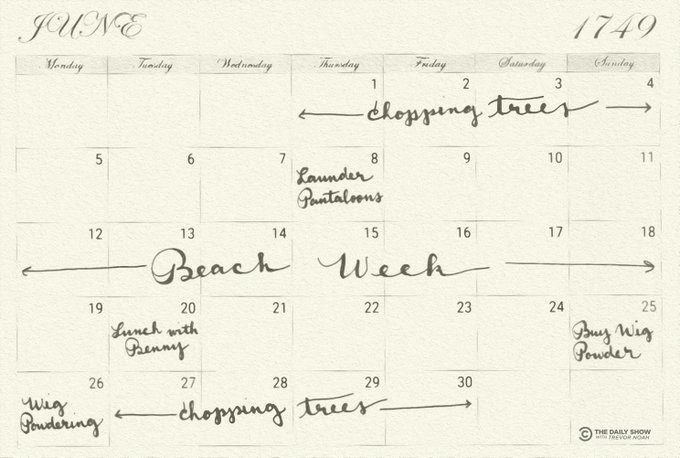 JUNE 1749
Monday Tuesday Wednesday Thursday Friday Saturday Sunday
1 2 3 4
chopping trees
5 6 7 8 9 10 11
Launder
Pantaloons
12 13 14 15 16 17 18
Beach Week
19 20 21 22 23 24 25
Lunch with
Benny
Buy Wig
Powder
26 27 28 29 30
Wig
Powdering
chopping trees
THE DAILY SHOW
WITH TREVOR NOAH